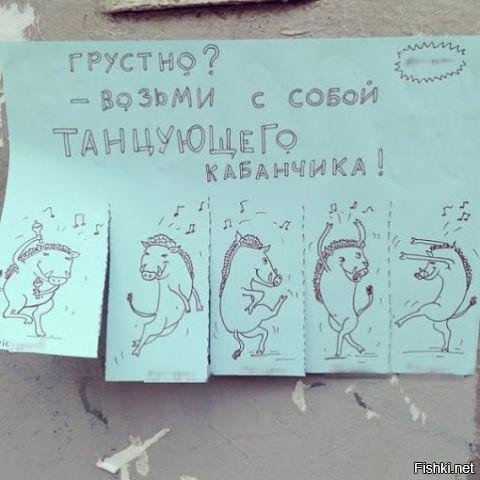 ГРУСТНО?
– ВОЗЬМИ С СОБОЙ
ТАНЦУЮЩЕГО
КАБАНЧИКА!
Fishki.net